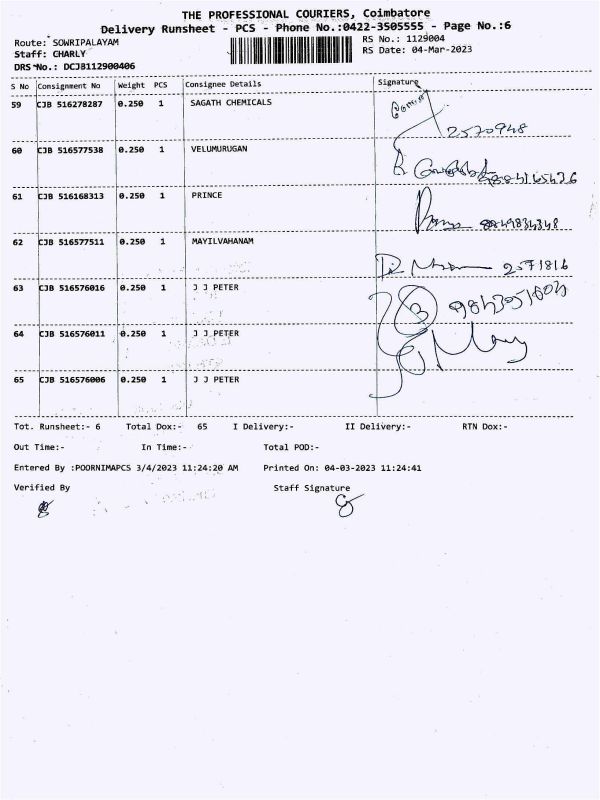 THE PROFESSIONAL COURIERS, Coimbatore
Delivery Runsheet - PCS - Phone No.:0422-3505555 - Page No.:6
Route: SOWRIPALAYAM RS No.: 1129004
Staff: CHARLY RS Date: 04-Mar-2023
DRS No.: DCJB112900406
S No Consignment No Weight PCS Consignee Details Signature
59 CJB 516278287 0.250 1 SAGATH CHEMICALS
2570948
60 CJB 516577538 0.250 1 VELUMURUGAN
61 CJB 516168313 0.250 1 PRINCE
62 CJB 516577511 0.250 1 MAYILVAHANAM
2571816
63 CJB 516576016 0.250 1 J J PETER
3
64 CJB 516576011 0.250 1 J J PETER
65 CJB 516576006 0.250 1 J J PETER
Tot. Runsheet:- 6 Total Dox:- 65 I Delivery:- II Delivery:- RTN Dox:-
Out Time:- In Time:- Total POD:-
Entered By :POORNIMAPCS 3/4/2023 11:24:20 AM Printed On: 04-03-2023 11:24:41
Verified By Staff Signature